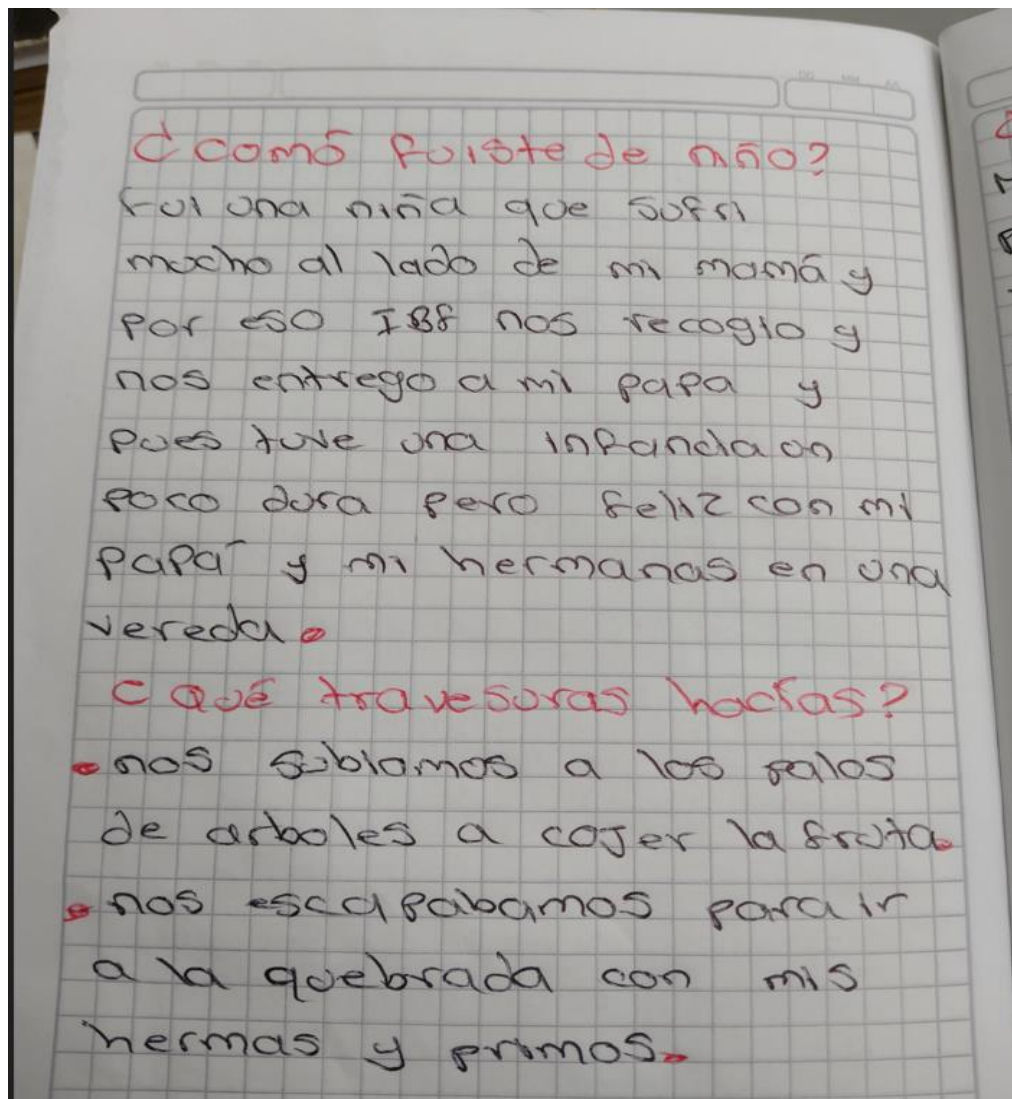 ¿como fuiste de niño?
Fui una niña que sufri
mucho al lado de mi mamá y
por eso IBF nos recogio y
nos entrego a mi papa y
pues tuve una infancia un
poco dura pero feliz con mi
papá y mi hermanas en una
vereda.
¿Qué travesuras hacías?
- nos subiamos a los palos
de arboles a cojer la fruta.
- nos escapabamos para ir
a la quebrada con mis
hermas y primos.